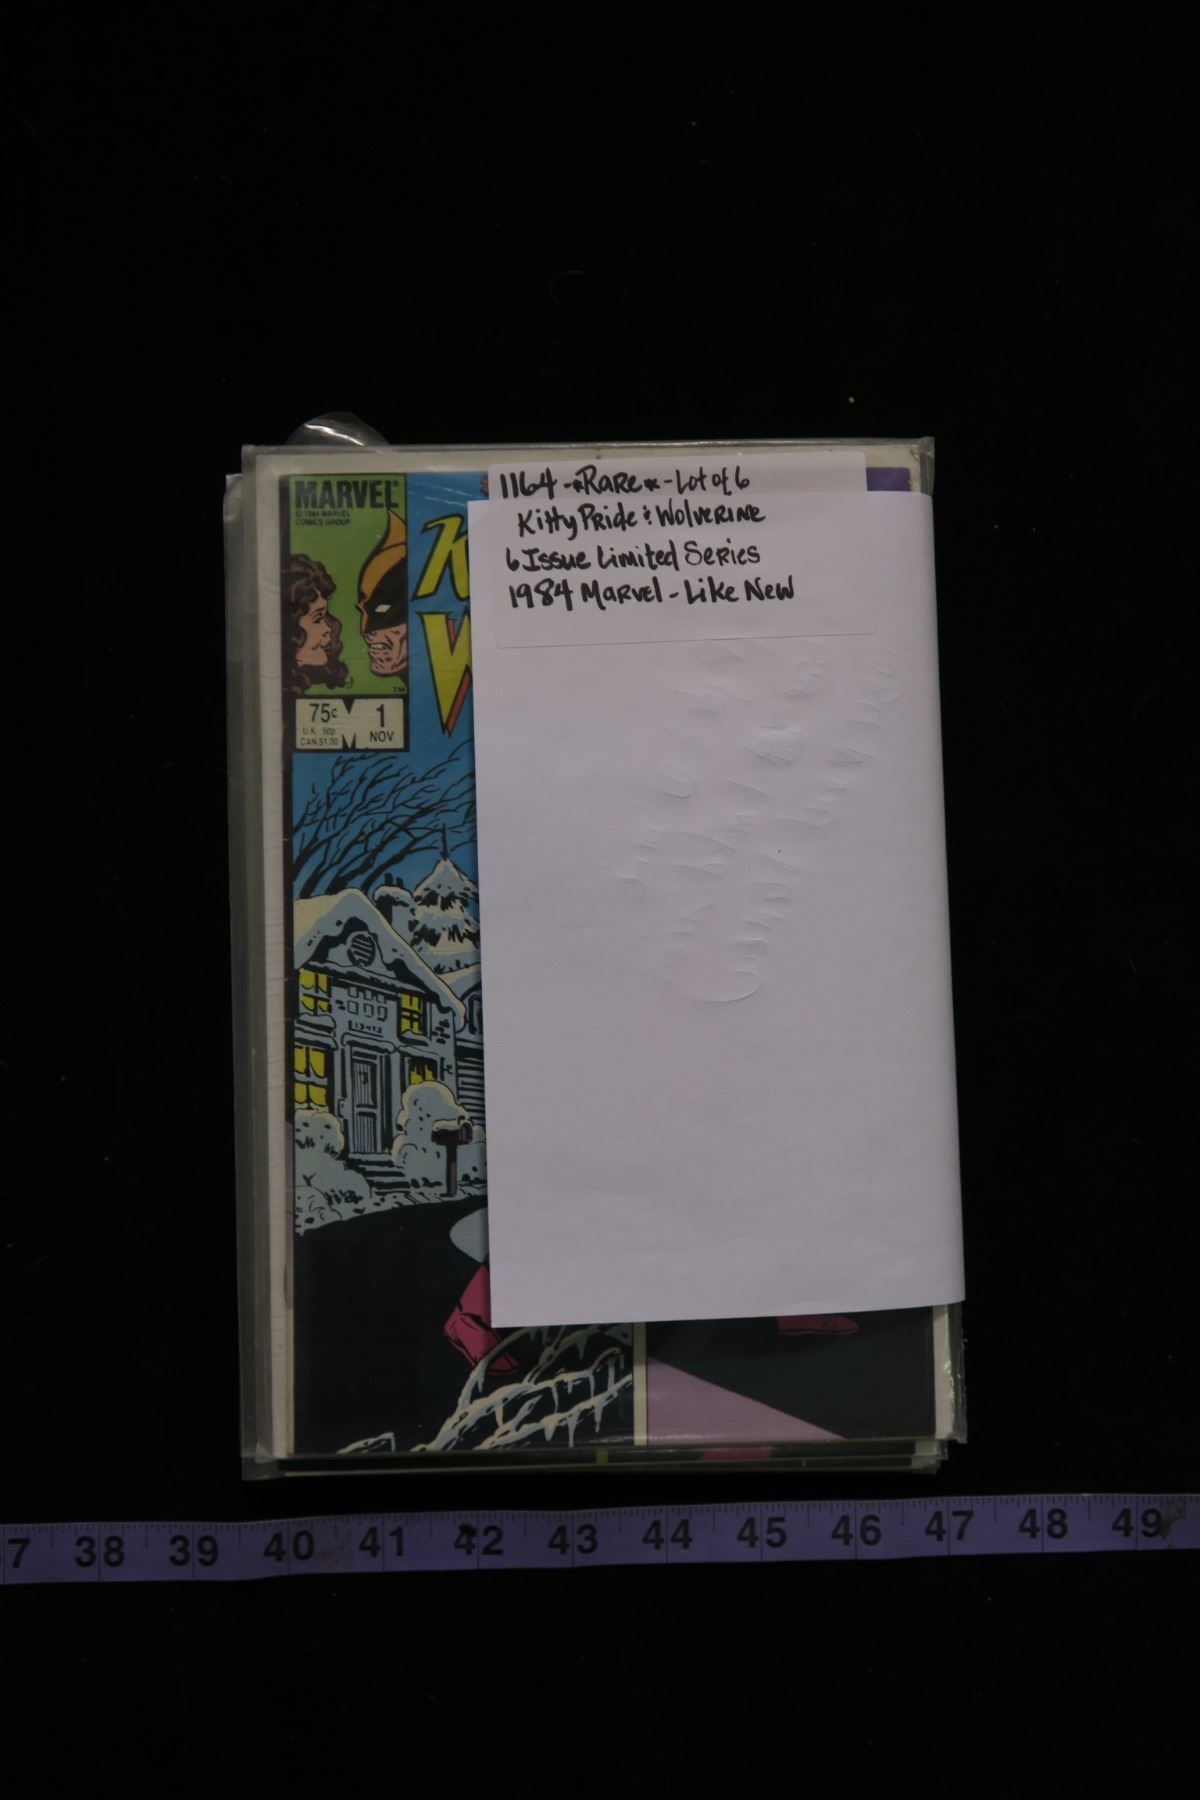 1164 - *Rare* - Lot of 6
Kitty Pride & Wolverine
6 Issue Limited Series
1984 Marvel - Like New
MARVEL
© 1984 MARVEL
COMICS GROUP
K
W
TM
75¢
U.K. 50p
CAN. $1.00
1
NOV
13472
37 38 39 40 41 42 43 44 45 46 47 48 49